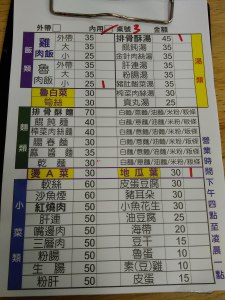 外帶 內用 桌號 3 金額
飯類 雞肉飯 外帶 35 排骨酥湯 45 1 湯類
大 35 餛飩湯 35
小 25 金針肉絲湯 35
魯肉飯 外帶 35 肝連湯 35
大 35 粉腸湯 35
小 25 1 豬肚酸菜湯 35
魯白菜 30 榨菜肉絲湯 35
筍絲 30 貢丸湯 25
麵類 排骨酥麵 70 白麵/油麵/冬粉/米粉/粄條
餛飩麵 60 白麵/油麵/冬粉/米粉/粄條
榨菜肉絲麵 60 白麵/油麵/冬粉/米粉/粄條
陽春麵 30 白麵/油麵/冬粉/米粉/粄條
麻醬麵 35 白麵/油麵/冬粉/米粉/粄條
乾麵 30 白麵/油麵/冬粉/米粉/粄條
小菜類 燙A菜 30 地瓜葉 30 1
軟絲 60 皮蛋豆腐 30
沙魚煙 60 豬耳朵 30
紅燒肉 60 小魚花生 30
肝連 50 油豆腐 25
嘴邊肉 50 海帶 20
三層肉 50 豆干 15
粉腸 50 魯蛋 10
生腸 50 素(葷)雞 10
粉肝 50 皮蛋 15
營業時間下午四點至凌晨一點